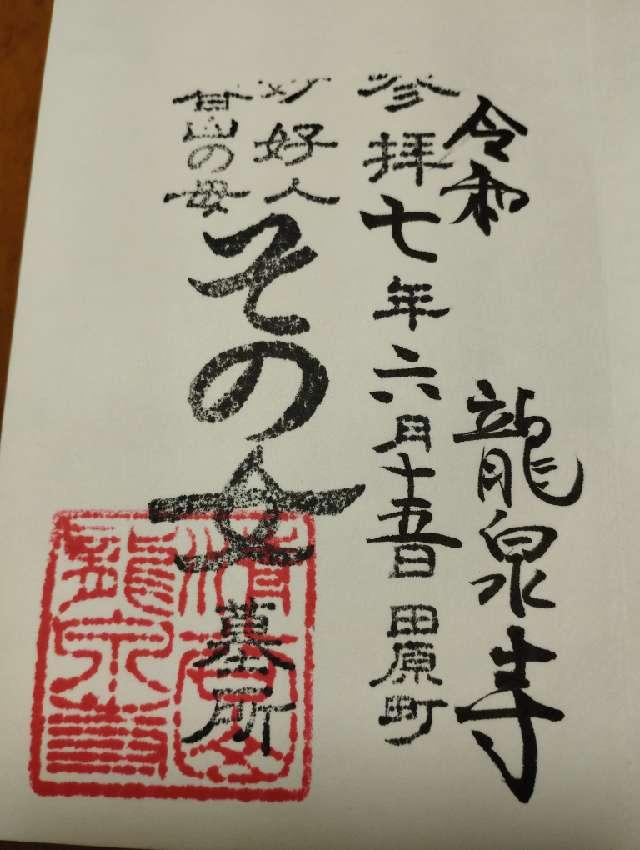 令和
龍泉寺
参拝七年六月十五日 田原町
好人
甘山の母
その女
墓所